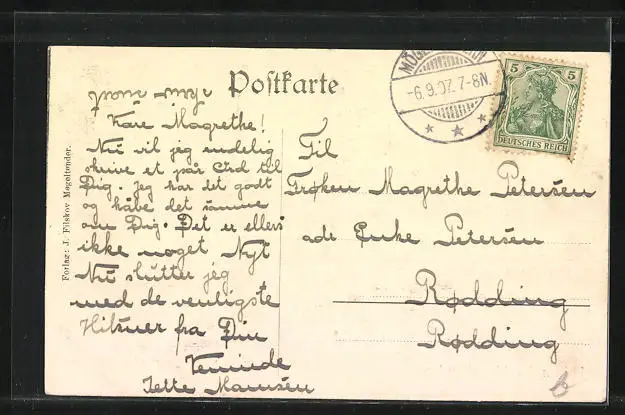 Postkarte
Kære Magrethe!
Nu vil jeg endelig
skrive et par Ord til
Dig. Jeg har det godt
og håbe det samme
om Dig. Det er ellers
ikke noget Nyt
Nu slutter jeg
med de venligste
Hilsner fra Din
Veninde
Jette Mamsen
Til
Frøken Magrethe Petersen
adr Enke Petersen
Rødding
Rødding
-6.9.07. 7-8N.
5 5
DEUTSCHES REICH
Forlag: J. Filskov Mögeltonder.
b